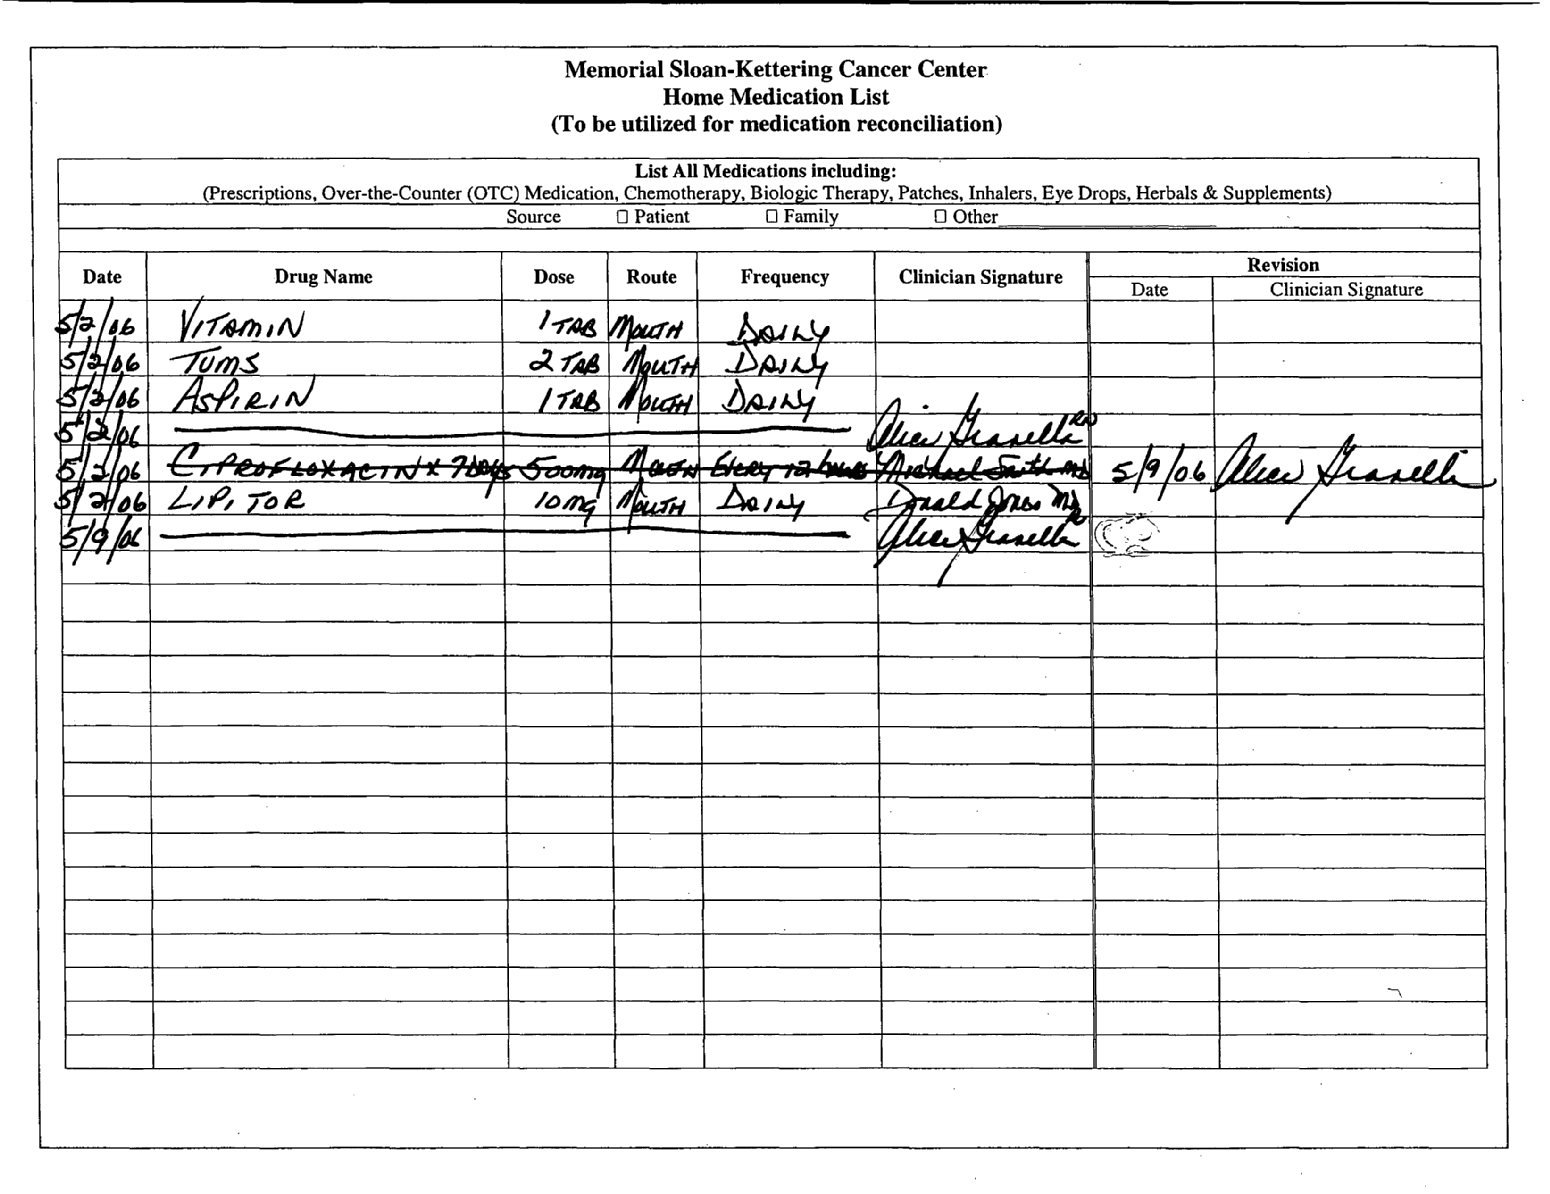 Memorial Sloan-Kettering Cancer Center
Home Medication List
(To be utilized for medication reconciliation)
List All Medications including:
(Prescriptions, Over-the-Counter (OTC) Medication, Chemotherapy, Biologic Therapy, Patches, Inhalers, Eye Drops, Herbals & Supplements)
Source □ Patient □ Family □ Other
Revision
Date Drug Name Dose Route Frequency Clinician Signature Date Clinician Signature
5/2/06 VITAMIN 1 TAB MOUTH DAILY
5/2/06 TUMS 2 TAB MOUTH DAILY
5/2/06 ASPIRIN 1 TAB MOUTH DAILY
5/2/06 Alice Granelli RN
5/2/06 CIPROFLOXACIN X 7 DAYS 500mg MOUTH Every 12 hours Michael Smith MD 5/9/06 Alice Granelli
5/2/06 LIPITOR 10mg MOUTH DAILY Donald Jones MD
5/9/06 Alice Granelli